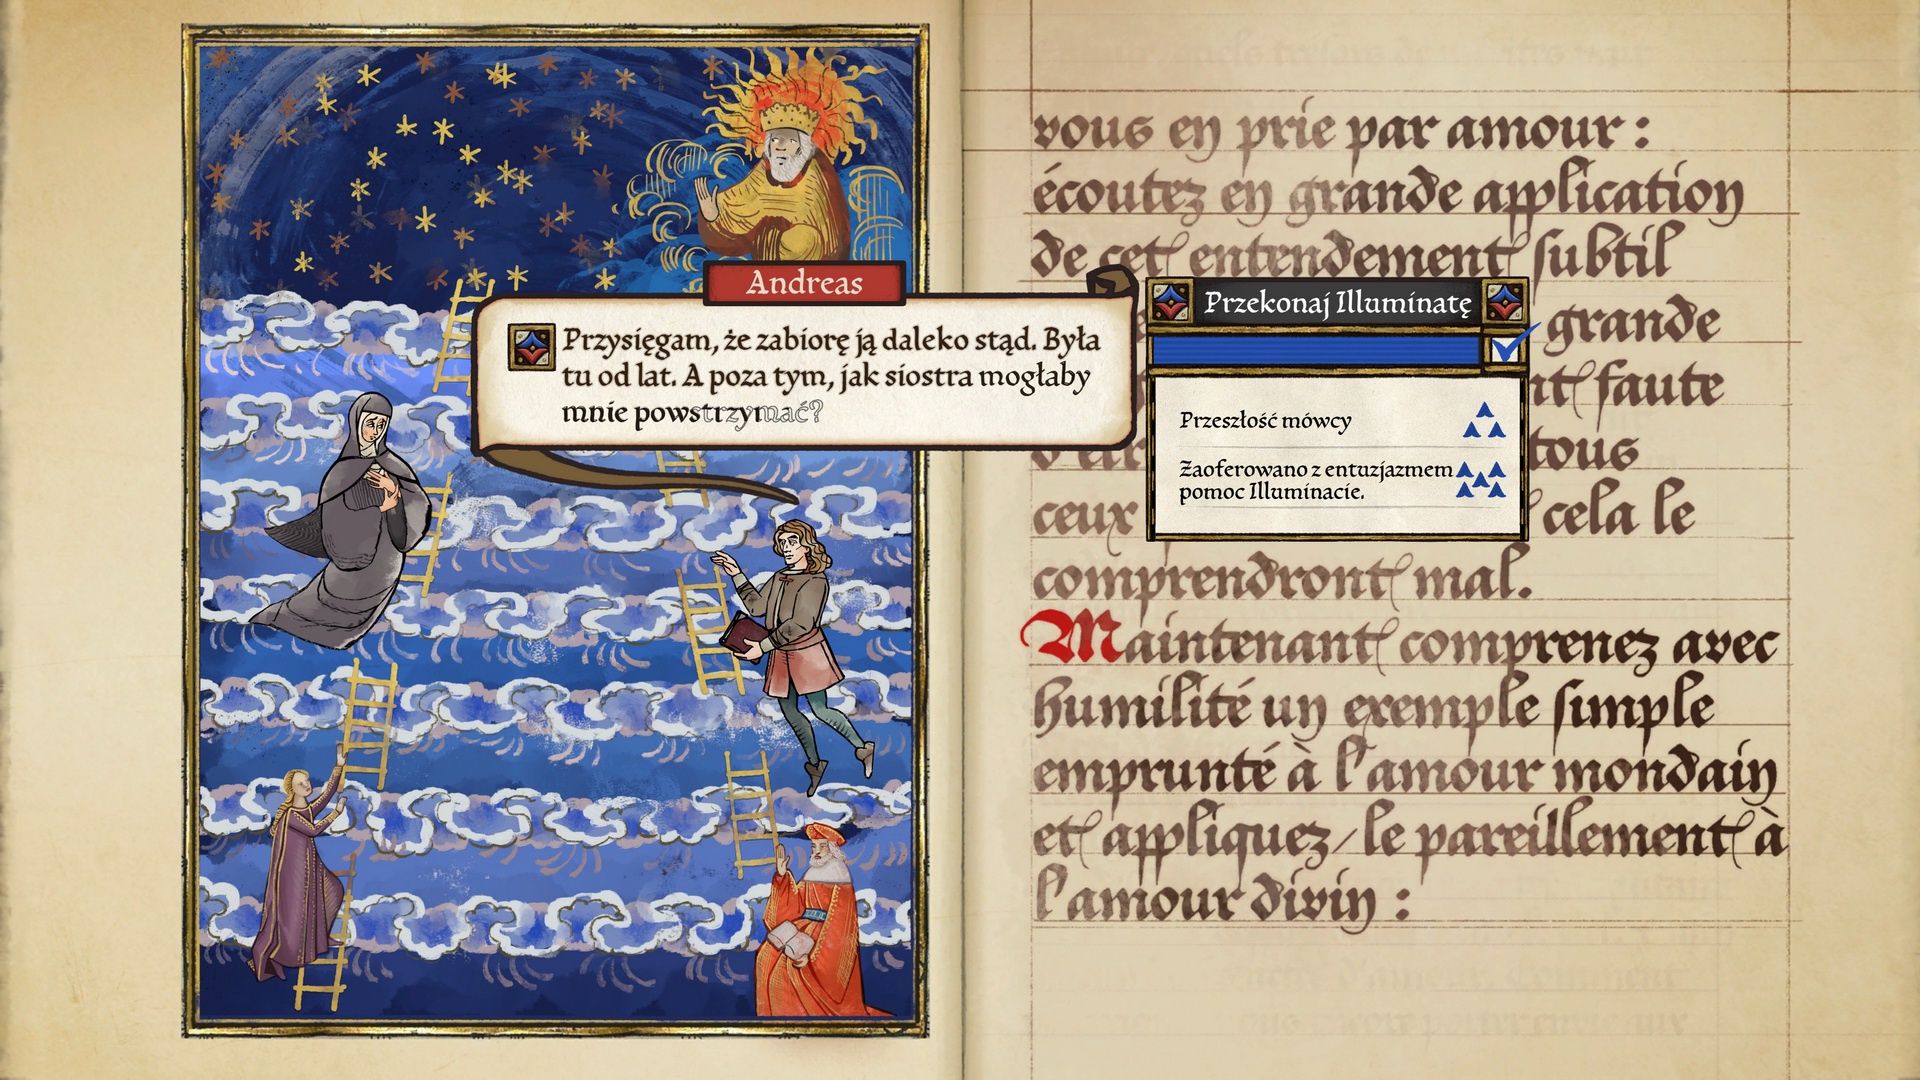 Andreas
Przysięgam, że zabiorę ją daleko stąd. Była
tu od lat. A poza tym, jak siostra mogłaby
mnie powstrzymać?
Przekonaj Illuminatę
Przeszłość mówcy
Zaoferowano z entuzjazmem
pomoc Illuminacie.
vous en prie par amour :
écoutez en grande application
de cet entendement subtil
grande
faute
tous
ceux cela le
comprendront mal.
Maintenant comprenez avec
humilité un exemple simple
emprunté à l'amour mondain
et appliquez/le pareillement à
l'amour divin :